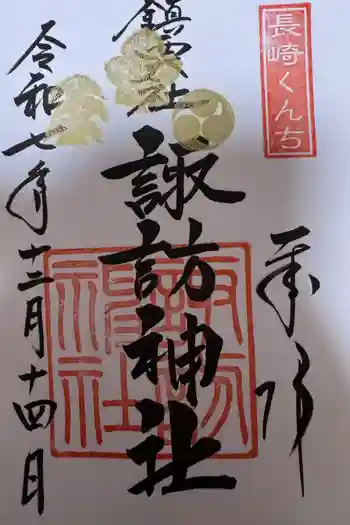 長崎くんち
奉拝
鎮西大社
諏訪神社
令和七年十二月十四日